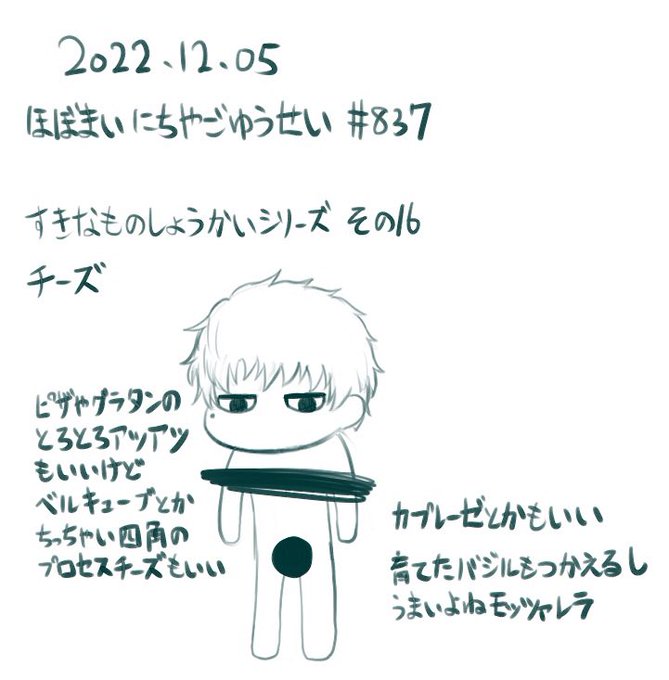 2022.12.05
ほぼまいにちやごゆうせい #837
すきなものしょうかいシリーズ その16
チーズ
ピザやグラタンの
とろとろアツアツ
もいいけど
ベルキューブとか
ちっちゃい四角の
プロセスチーズもいい
カプレーゼとかもいい
育てたバジルもつかえるし
うまいよねモッツァレラ